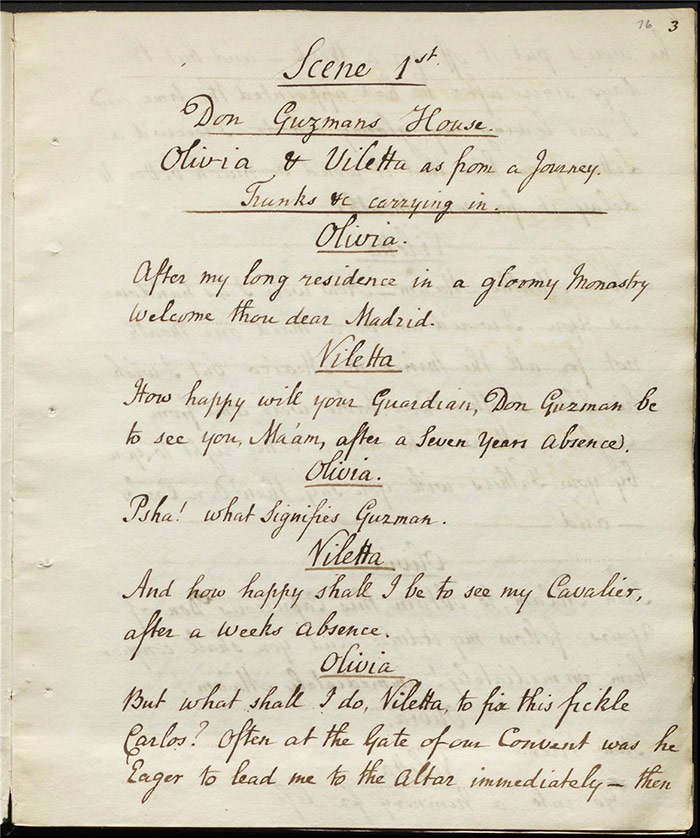 16 3
Scene 1st.
Don Guzmans House.
Olivia & Viletta as from a Journey.
Trunks &c carrying in.
Olivia.
After my long residence in a gloomy Monastry
Welcome thou dear Madrid.
Viletta
How happy will your Guardian, Don Guzman be
to see you, Ma'am, after a Seven Years Absence.
Olivia.
Psha! what Signifies Guzman.
Viletta
And how happy shall I be to see my Cavalier,
after a Weeks Absence.
Olivia
But what shall I do, Viletta, to fix this fickle
Carlos? Often at the Gate of our Convent was he
Eager to lead me to the Altar immediately — then